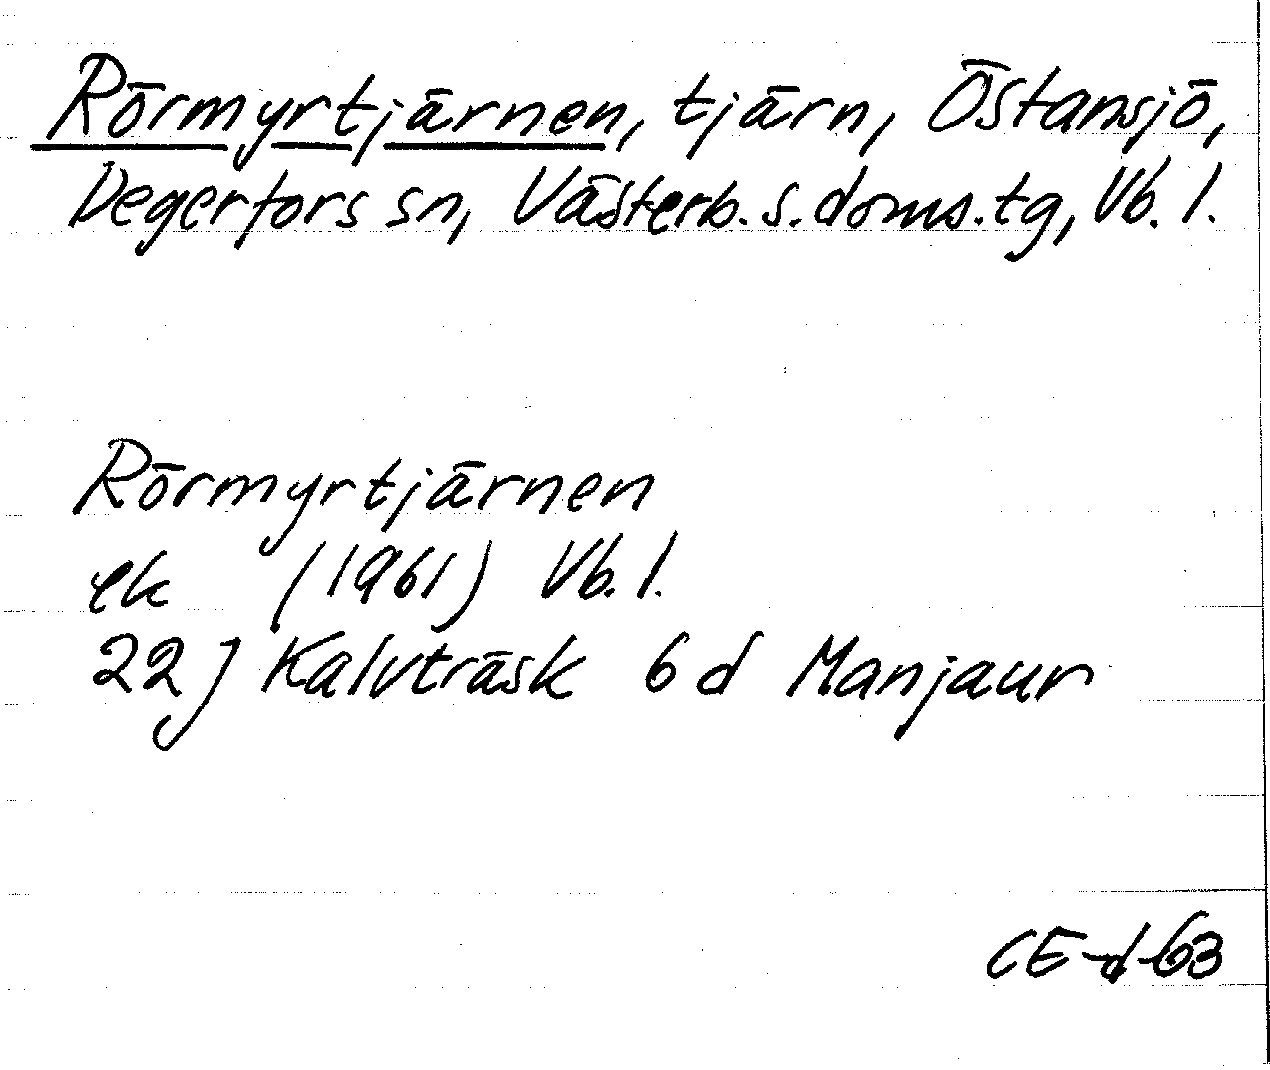 Rörmyrtjärnen, tjärn, Östansjö,
Degerfors sn, Västerb. s. doms. tg, Vb. l.
Rörmyrtjärnen
ek (1961) Vb. l.
22 J Kalvträsk 6 d Manjaur
CE-d-63